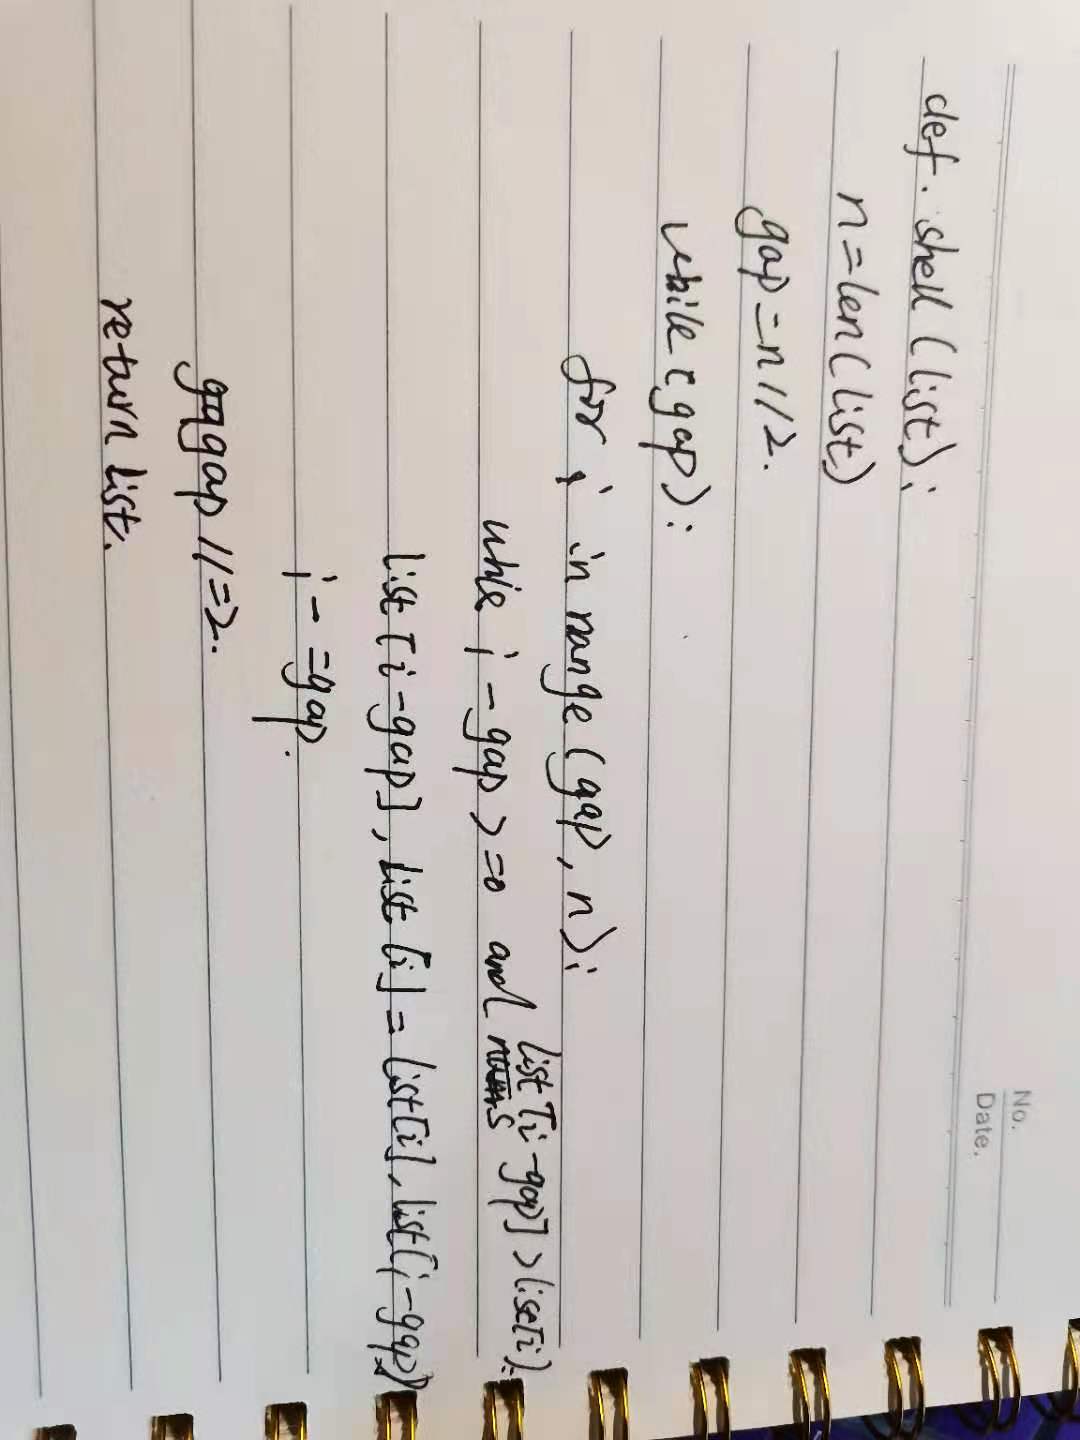 No.
Date.
def. shell (list):
n=len(list)
gap=n//2.
while (gap):
for i in range (gap, n):
while i-gap>=0 and list[i-gap]>list[i]:
list [i-gap], list [i] = list[i], list[i-gap]
i-=gap.
gap//=2.
return list.